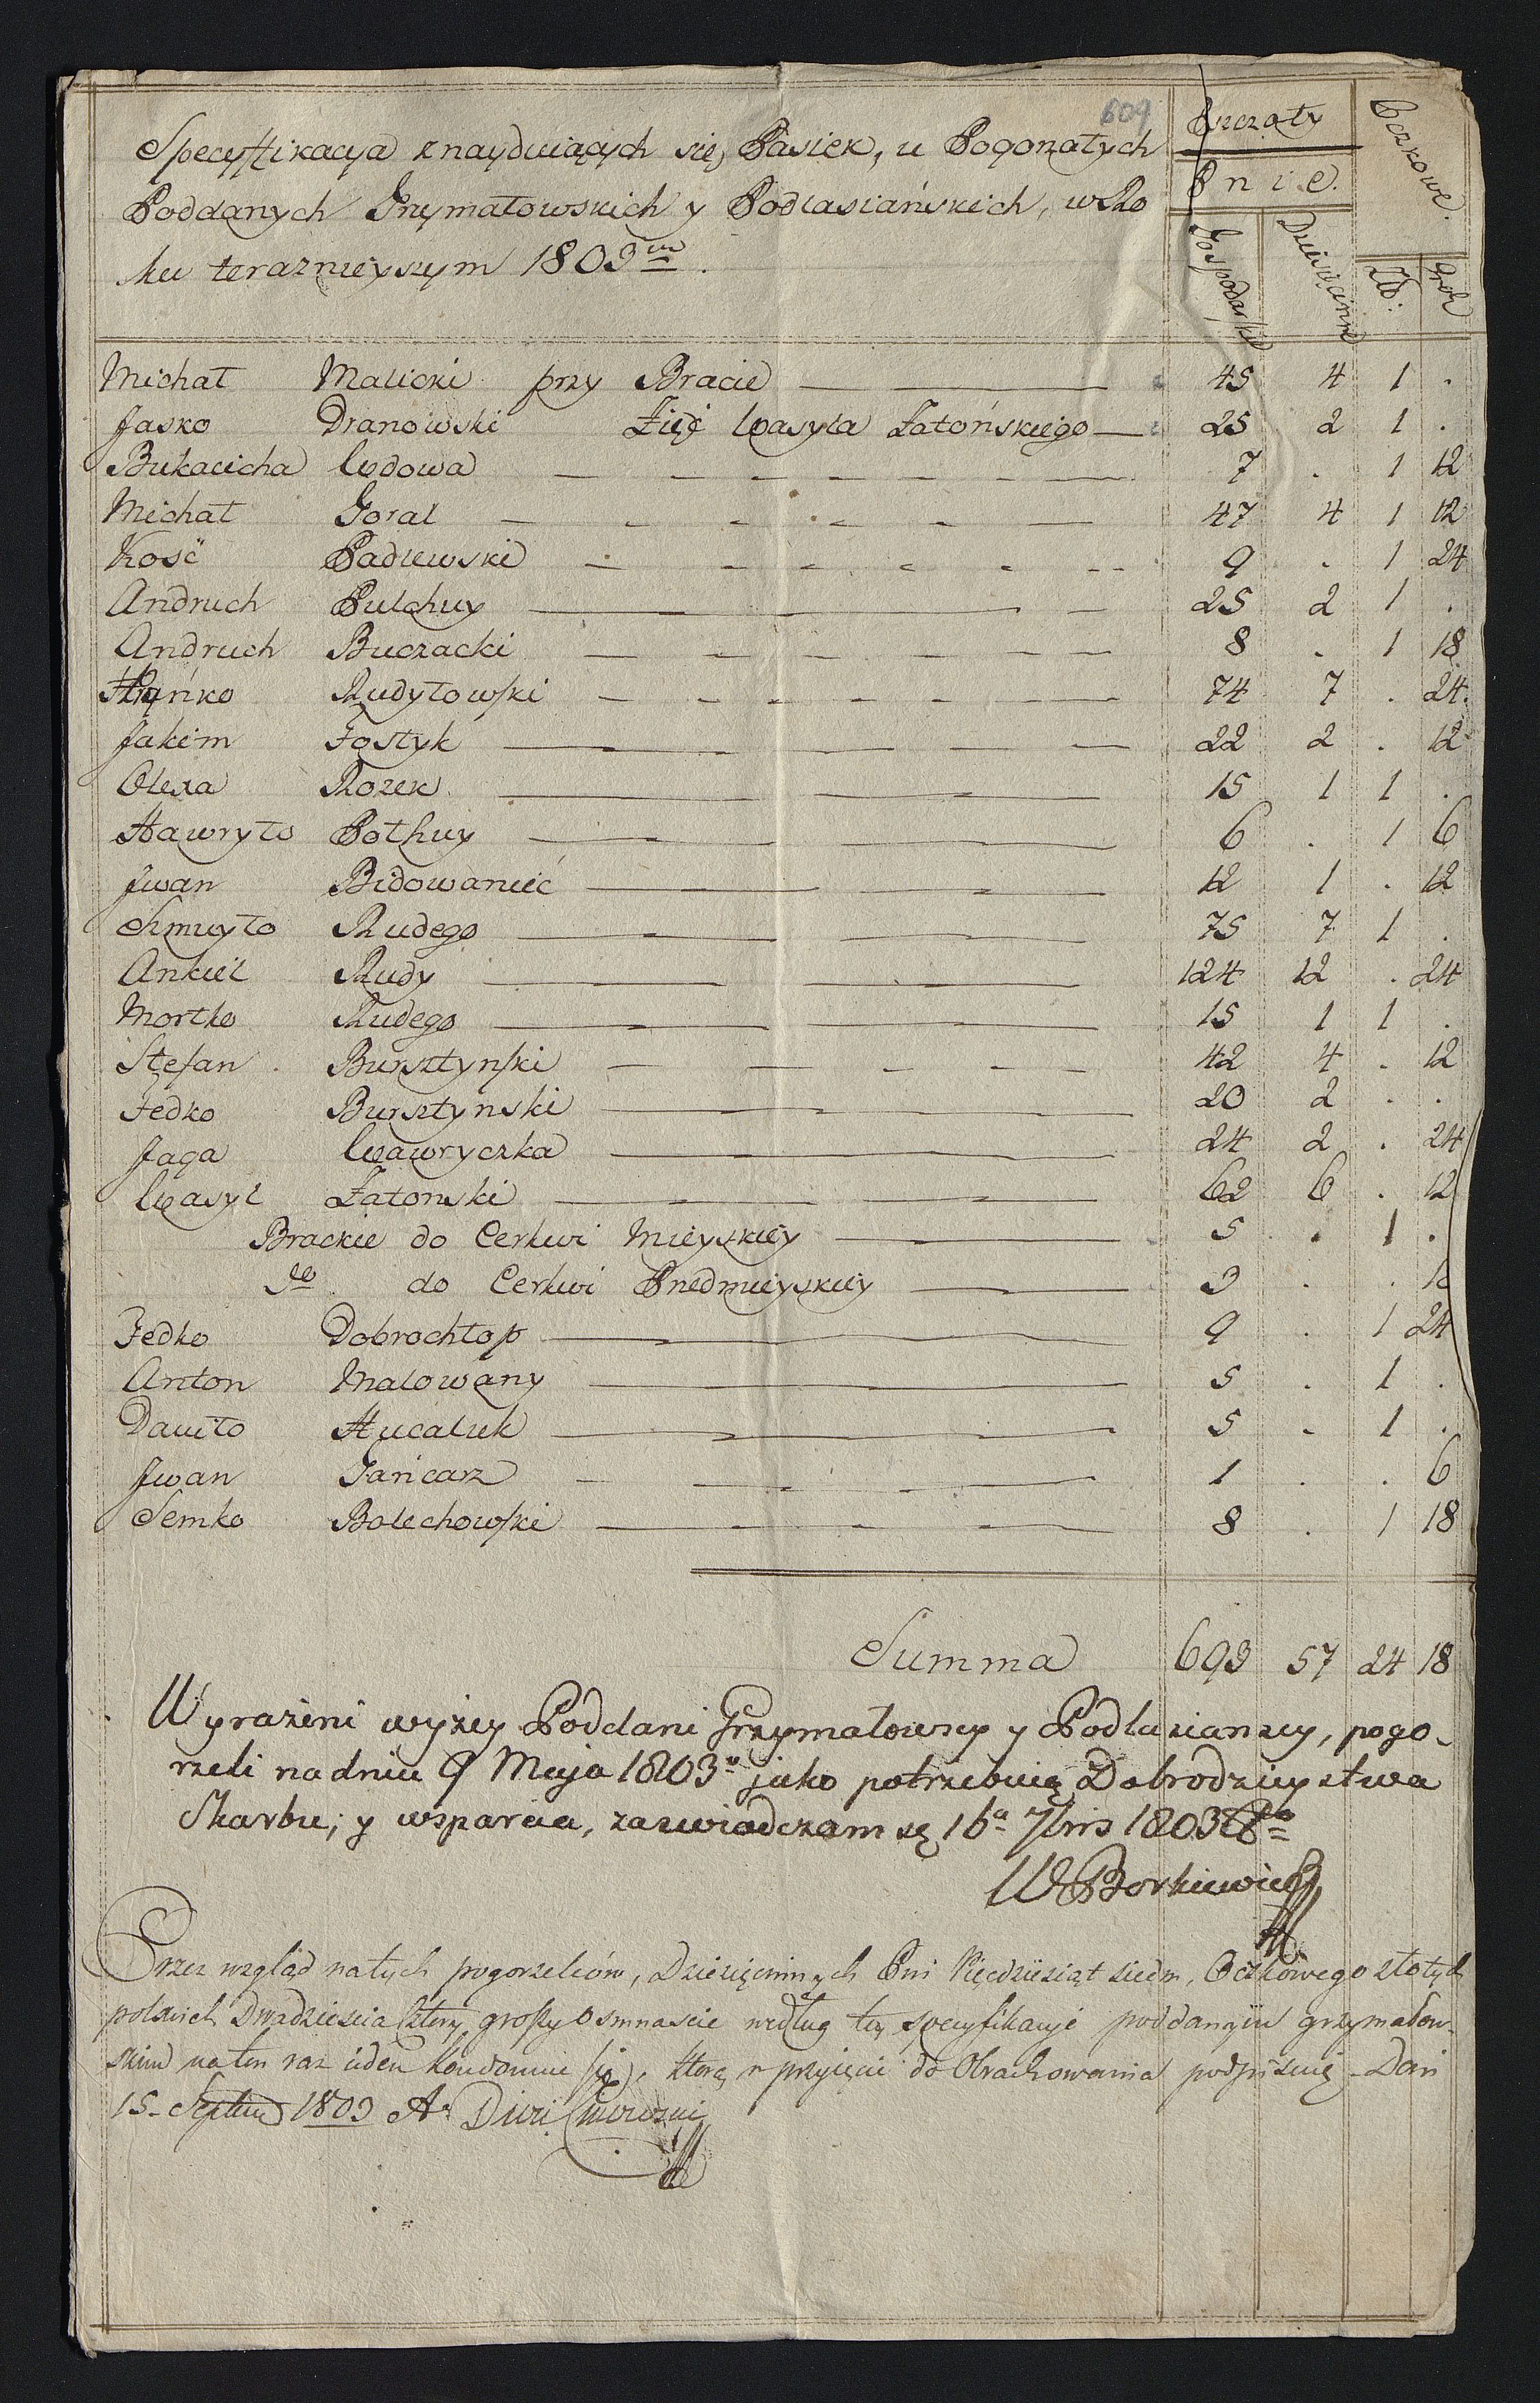 609
Specyfikacya znayduiących się Pasiek, u Pogorzałych
Poddanych Grzymałowskich y Podlasiańskich, w Ro
ku teraznieyszym 1803m
Pszczoły
Pnie.
Gospodarskie
Dziesięcinne
Oczkowe.
Zło:
Grosz
Michał Malicki przy Bracie 45 4 1 .
Jasko Dranowski Zięć Wasyla Zatońskiego 25 2 1 .
Bukacicha Wdowa 7 . 1 12
Michał Goral 47 4 1 12
Kosć Padlewski 9 . 1 24
Andruch Pulchuy 25 2 1 .
Andruch Buczacki 8 . 1 18
Rudyłowski 74 7 . 24
Jakim Fostyk 22 2 . 12
Olexa Rozek 15 1 1 .
Hawryło Pothuy 6 . 1 6
Jwan Bidowaniec 12 1 . 12
Szmuyło Rudego 75 7 1 .
Ankiel Rudy 124 12 . 24
Mortko Rudego 15 1 1 .
Stefan Bursztynski 42 4 . 12
Fedko Bursztynski 20 2 . .
Jaga Wawryczka 24 2 . 24
Wasyl Zatonski 62 6 . 12
Brackie do Cerkwi Mieyskiey 5 . 1 .
do Cerkwi Przedmieyskiey 3 . .
Fedko Dobrochłop 9 . 1 24
Anton Malowany 5 . 1 .
Daniło Hucaluk 5 . 1 .
Jwan Gańcarz 1 . . 6
Semko Bolechowski 8 . 1 18
Summa 693 57 24 18
Wyrażeni wyżey Poddani Grzymałowscy y Podlasianscy, pogo-
rzeli na dniu 9 Maja 1803o jako potrzebuią Dobrodzieystwa
Skarbu; y wsparcia, zaswiadczam są 16a 7bris 1803
W Borkiewicz
Przez wzgląd na tych pogorzelców, Dziesięcinnych Pni Pięcdziesiąt siedm, Oczkowego złotych
polskich Dwadziescia cztery groszy Osmnascie według tey specyfikacyi poddanym grzymałow-
skim na ten raz się, ktorą w przyięcie do Obrachowania podpisuię - Dan
15- Septem 1803 A